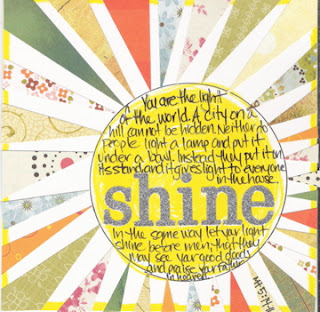 You are the light
of the world. A city on a
hill cannot be hidden. Neither do
people light a lamp and put it
under a bowl. Instead they put it on
its stand and it gives light to everyone
in the house.
shine
In the same way let your light
shine before men, that they
may see your good deeds
and praise your father
in heaven.